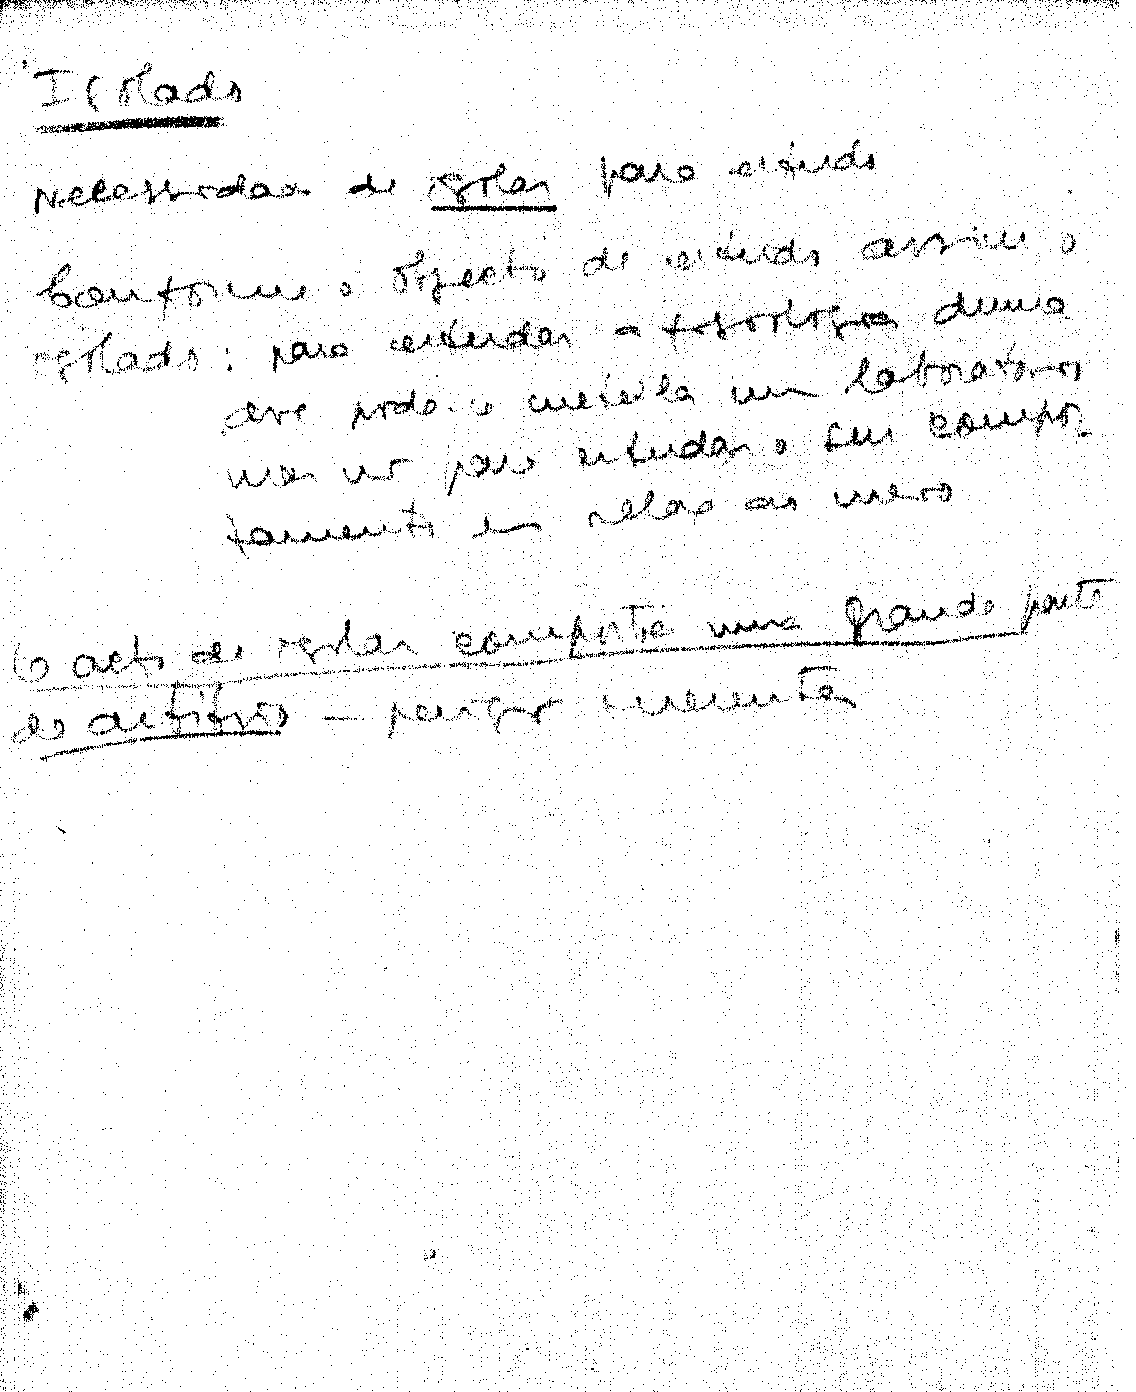 Isolado
Necessidade de isolar para estudo
Conforme o objecto de estudo assim o
isolado: para estudar a fisiologia duma
ave pode-se metê-la num laboratório
mas não para estudar o seu compor-
tamento em relação ao meio
O acto de isolar comporta uma grande parte
de artifício — perigos inerentes